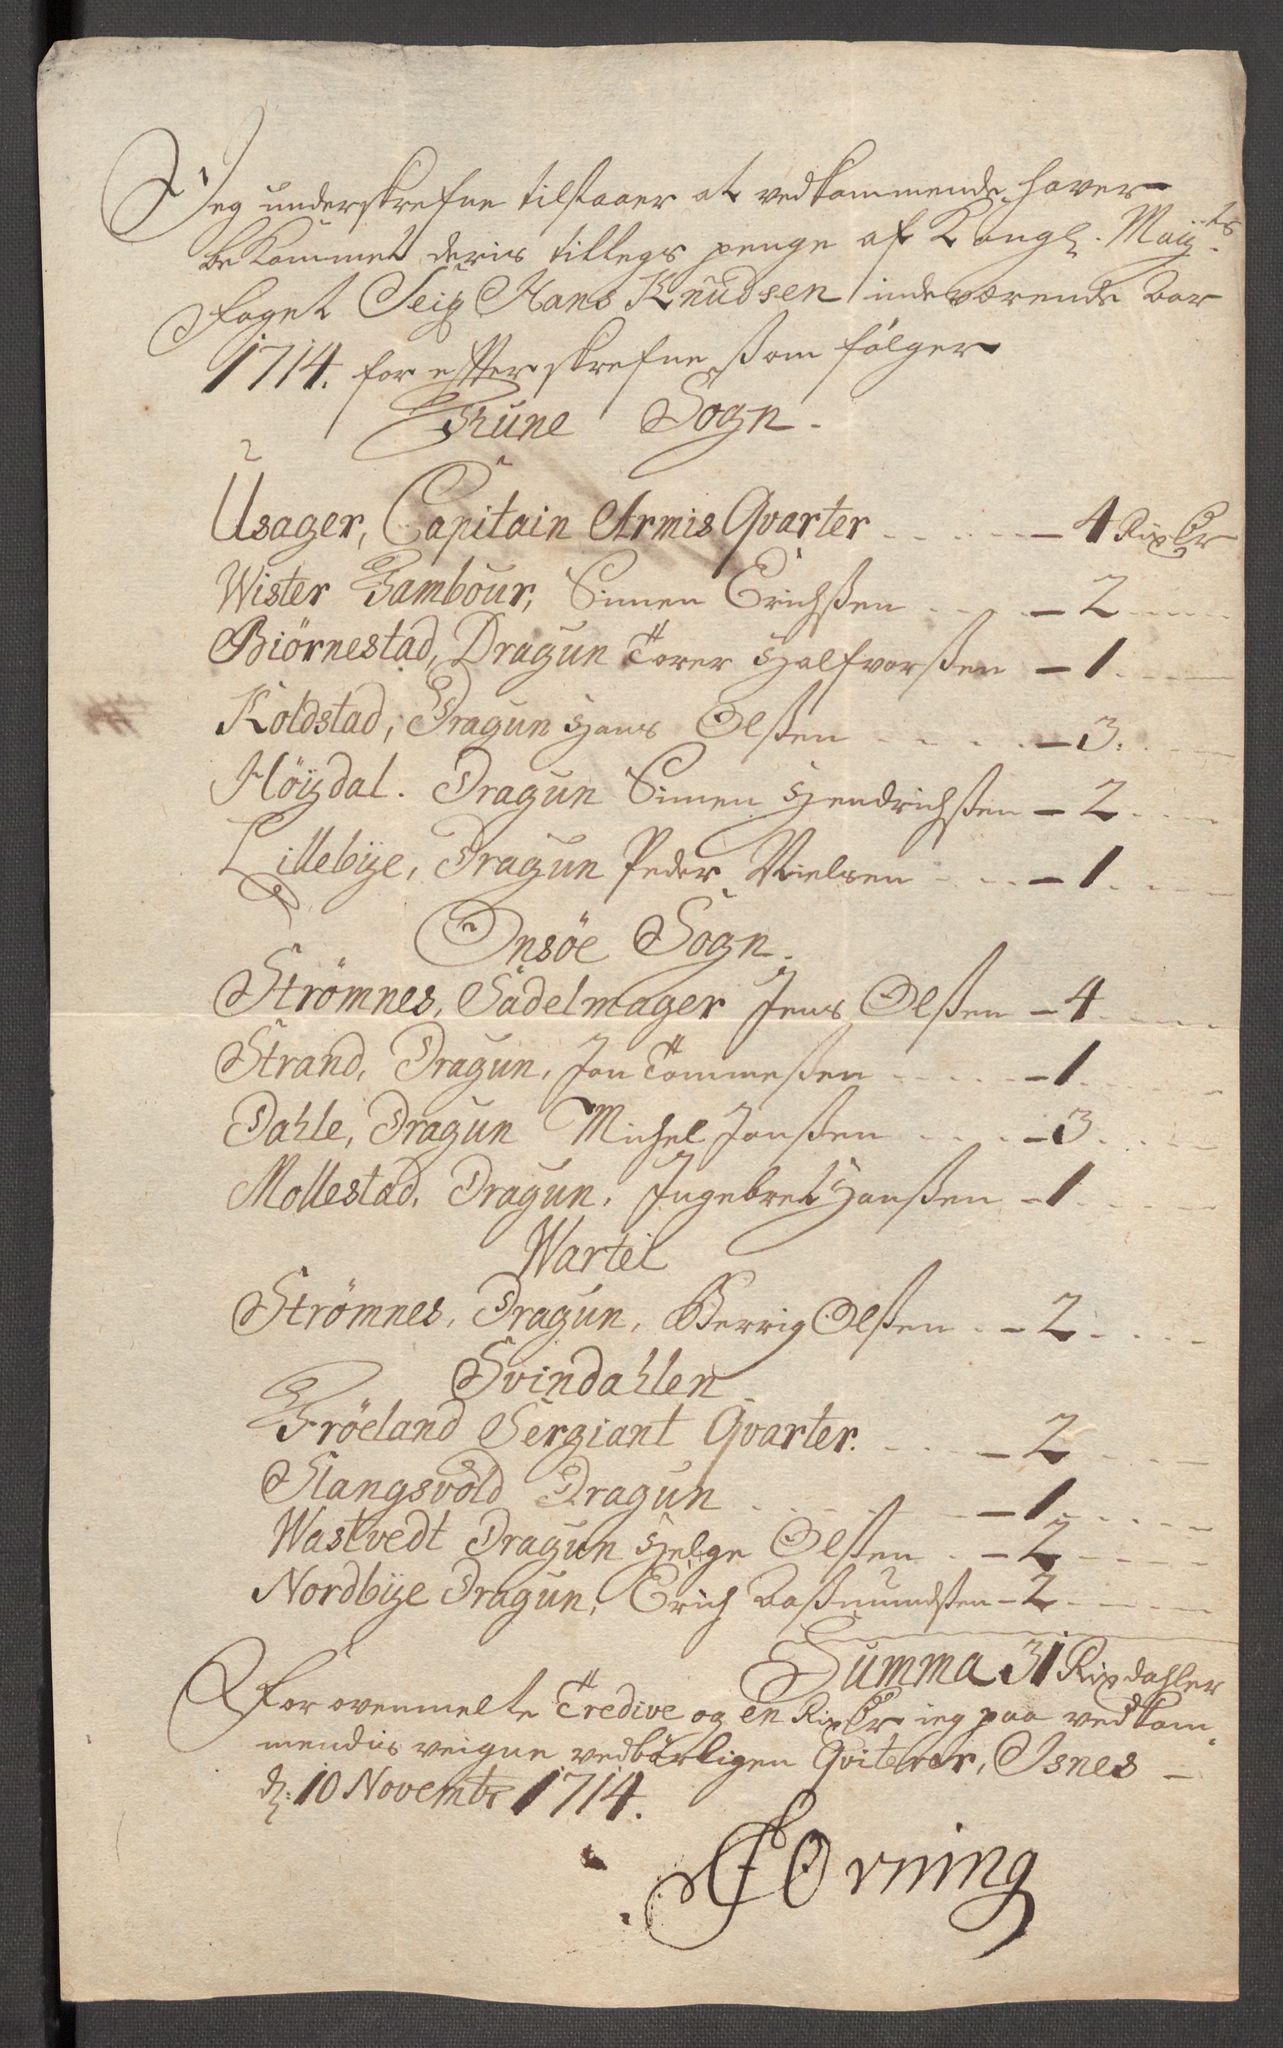 Jeg underskrefne tilstaaer at vedkommende haver
bekommet deris tillegs penge af Kongl. Maÿts
Foget Seig Hans Knudsen indeværende Aar
1714. for efterskrefne som følger
Thune Sogn.
Usager, Capitain Armis Qvarter - 4 Rixdr
Wister Tambour, Simen Erichßen - 2
Biörnestad, Dragun Torer Halfvorßen - 1
Koldstad, Dragun Hans Olßen - 3.
Höÿdal. Dragun Simen Hendrichßen - 2
Lillebÿe, Dragun Peder Nielsen - 1
Onsöe Sogn.
Strömnes, Sadelmager Jens Olßen - 4
Strand, Dragun, Jon Tommeßen - 1
Dahle, Dragun Michel Jonßen - 3
Mollestad, Dragun, Ingebret Hanßen - 1
Warteil
Strömnes, Dragun, Olßen - 2
Svindahlen
Fröeland Sergiant Qvarter. - 2
Slangsvold Dragun - 1
Wastvedt Dragun Helge Olßen - 2
Nordbÿe Dragun, Erich Aaßmundßen - 2
Summa 31 Rixdahler
For ovenmelte Tredive og en Rixdr ieg paa vedkom
mendis veigne vedbörligen Qviterer, Isnes
d: 10 Novembr 1714.
Orning